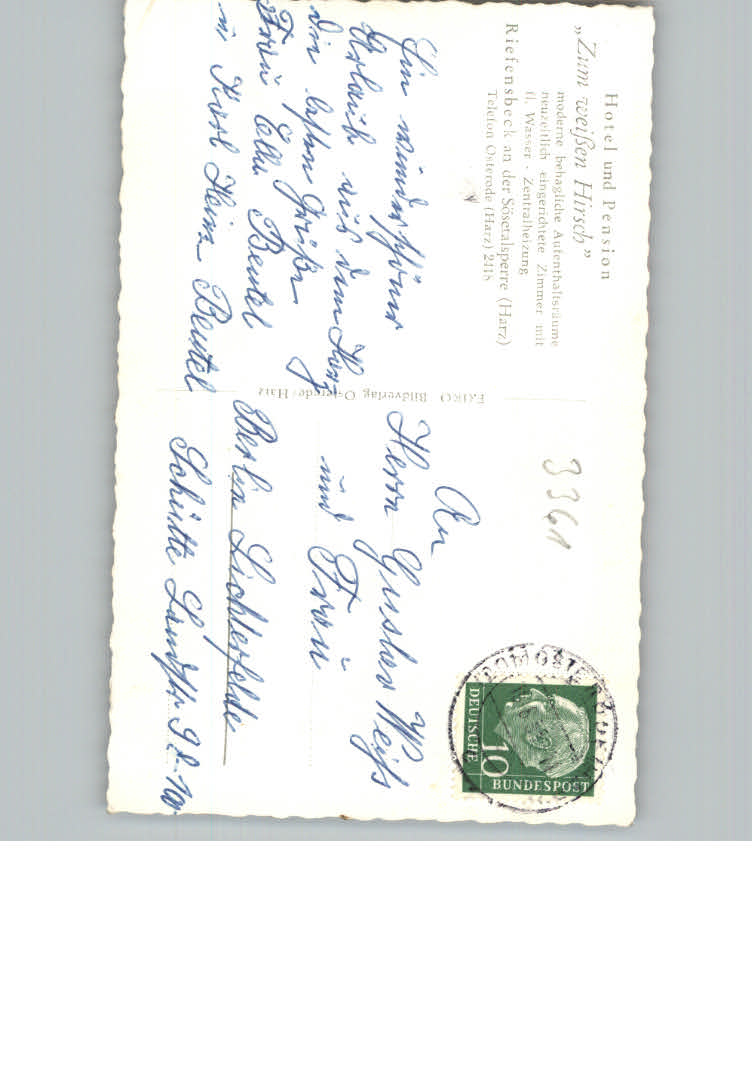 Hotel und Pension
„Zum weißen Hirsch”
moderne behagliche Aufenthaltsräume
neuzeitlich eingerichtete Zimmer mit
fl. Wasser · Zentralheizung
Riefensbeck an der Sösetalsperre (Harz)
Telefon Osterode (Harz) 2118
Ein wunderschöner
Urlaub aus dem Harz
die besten Grüße
Frau Elli Beutel
u Karl Heinz Beutel
Bildverlag Osterode-Harz
3361
DEUTSCHE
10
BUNDESPOST
An
Herrn Gustav Weiß
und Frau
Berlin Lichterfelde
Schütte Landstr 98-100